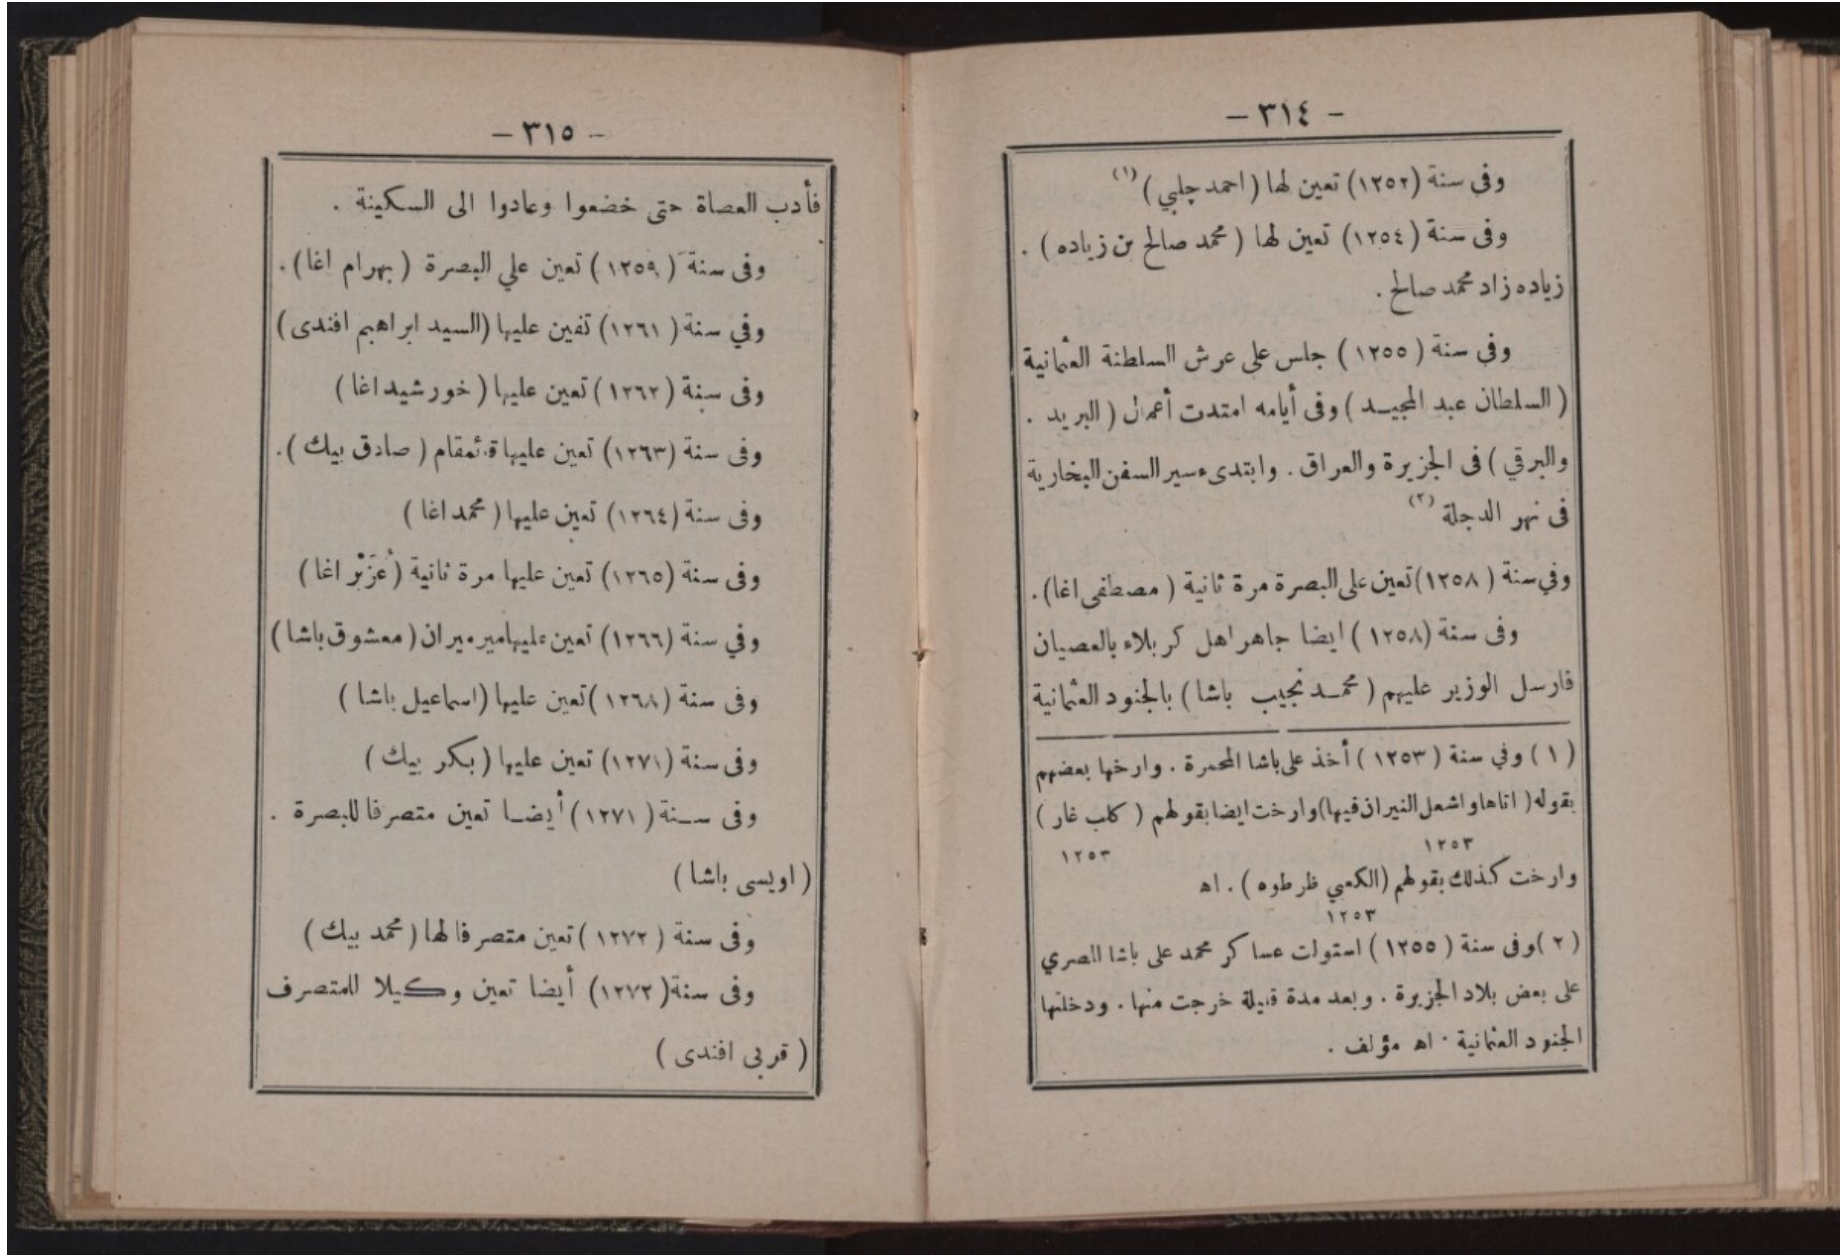 — ٣١٤ —
وفى سنة (١٢٥٢) تعين لها ( احمد چلبي ) (١)
وفى سنة ( ١٢٥٤) تعين لها ( محمد صالح من زياده ) .
زياده زاد محمد صالح .
وفى سنة ( ١٢٥٥ ) جلس على عرش السلطنة العثمانية
( السلطان عبد المجيد ) وفى أيامه امتدت أعمال ( البريد .
والبرقي ) فى الجزيرة والعراق . وابتدىء سير السفن البخارية
فى نهر الدجلة (٢)
وفي سنة ( ١٢٥٨) تعين على البصرة مرة ثانية ( مصطفى اغا) .
وفى سنة (١٢٥٨ ) ايضا جاهر اهل كربلاء بالعصيان
فارسل الوزير عليهم ( محمد نجيب باشا ) بالجنود العثمانية
( ١ ) وفي سنة ( ١٢٥٣ ) أخذ على باشا المحمرة . وارخها بعضهم
بقوله ( اتاها واشعل النيران فيها) وارخت ايضا بقولهم ( كلب غار )
١٢٥٣ ١٢٥٣
وارخت كذلك بقولهم (الكعبي ظرطوه ) . اه
١٢٥٣
( ٢ ) وفى سنة ( ١٢٥٥ ) استولت عساكر محمد على باشا المصري
على بعض بلاد الجزيرة . وبعد مدة قليلة خرجت منها . ودخلتها
الجنود العثمانية . اه مؤلف .
— ٣١٥ —
فأدب العصاة حتى خضعوا وعادوا الى السكينة .
وفى سنة ( ١٢٥٩ ) تعين علي البصرة ( بهرام اغا) .
وفي سنة ( ١٢٦١ ) تفين عليها (السيد ابراهيم افندى )
وفى سنة ( ١٢٦٢ ) تعين عليها ( خورشيد اغا )
وفى سنة (١٢٦٣) تعين عليها قائمقام ( صادق بيك ) .
وفى سنة (١٢٦٤) تعين عليها ( محمد اغا )
وفى سنة (١٢٦٥) تعين عليها مرة ثانية ( عُزَيْر اغا )
وفي سنة (١٢٦٦) تعين عليها مير ميران ( معشوق باشا )
وفى سنة (١٢٦٨ ) تعين عليها (اسماعيل باشا )
وفى سنة (١٢٧١) تعين عليها (بكر بيك )
وفى سنة ( ١٢٧١) أيضا تعين متصرفا للبصرة .
( اويسى باشا )
وفى سنة ( ١٢٧٢ ) تعين متصرفا لها ( محمد بيك )
وفى سنة( ١٢٧٢) أيضا تعين وكيلا للمتصرف
( قربى افندى )